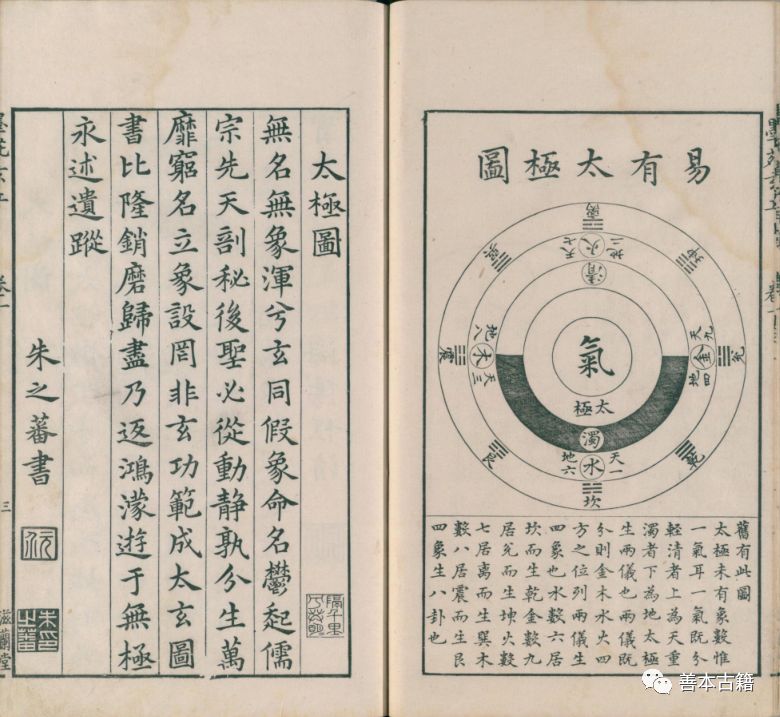 易有太極圖
離
地二
火
天七
清
巽
坤
地八
木
天三
震
氣
天九
金
地四
兌
太極
濁
天一
水
地六
艮
乾
坎
舊有此圖
太極未有象數惟
一氣耳一氣既分
輕清者上為天重
濁者下為地太極
生兩儀也兩儀既
分則金木水火四
方之位列兩儀生
四象也水數六居
坎而生乾金數九
居兌而生坤火數
七居離而生巽木
數八居震而生艮
四象生八卦也
太極圖
無名無象渾兮玄同假象命名鬱起儒
宗先天剖秘後聖必從動靜孰分生萬
靡窮名立象設罔非玄功範成太玄圖
書比隆銷磨歸盡乃返鴻濛遊于無極
永述遺蹤
朱之蕃書
三
滋蘭堂
善本古籍